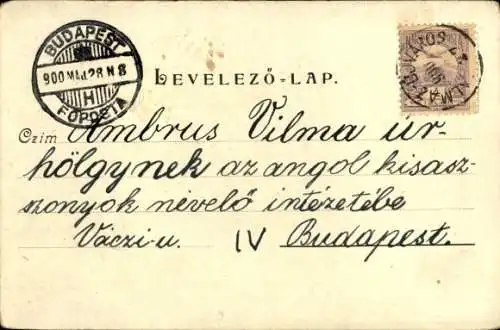 BUDAPEST
900 MÁJ 28 N 8
H
FŐPOSTA
LEVELEZŐ-LAP.
Czím Ambrus Vilma úr-
hölgynek az angol kisasz-
szonyok nevelő intézetébe
Váczi-u. IV Budapest.